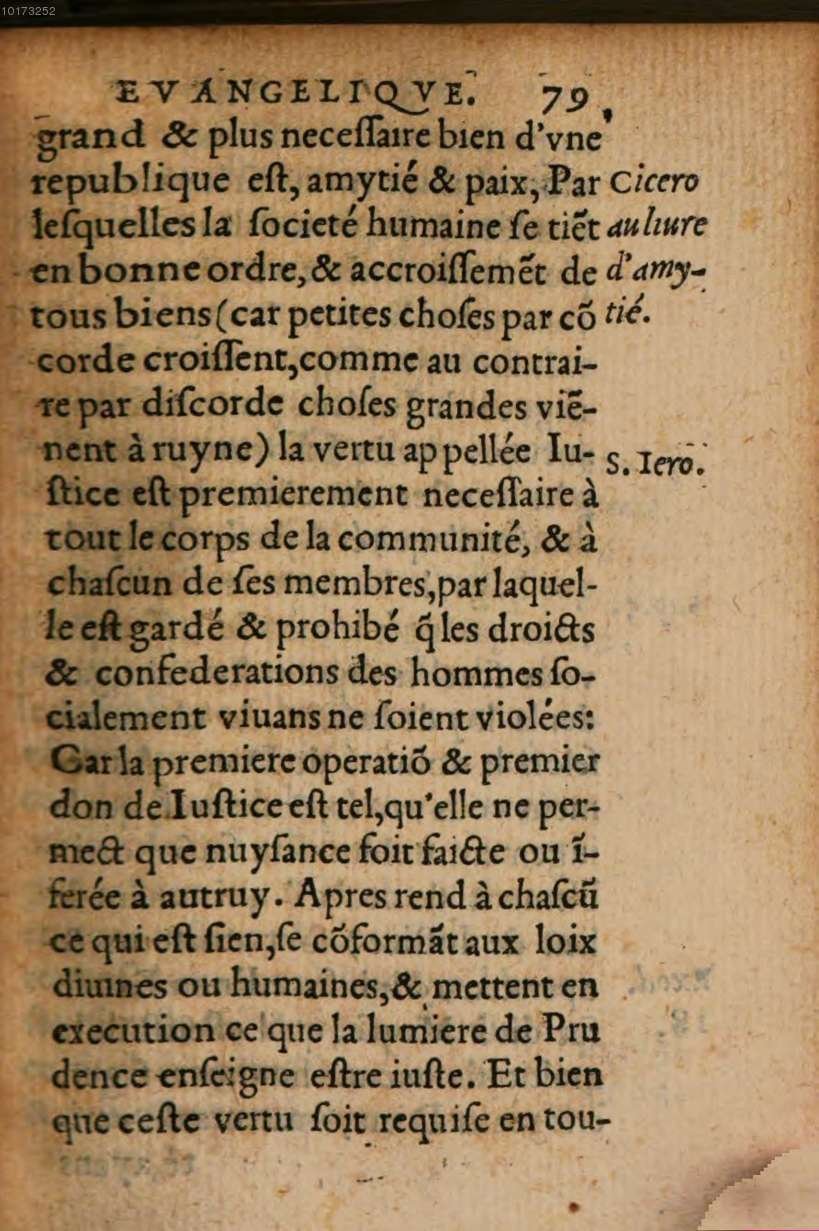 10173252
EVANGELIQVE. 79
grand & plus neceſſaire bien d'vne
republique eſt, amytié & paix, Par
leſquelles la ſocieté humaine ſe tiẽt
en bonne ordre, & accroiſſemẽt de
tous biens (car petites choſes par cõ
corde croiſſent, comme au contrai-
re par diſcorde choſes grandes viẽ-
nent à ruyne) la vertu appellée Iu-
ſtice eſt premierement neceſſaire à
tout le corps de la communité, & à
chaſcun de ſes membres, par laquel-
le eſt gardé & prohibé q̃ les droicts
& confederations des hommes ſo-
cialement viuans ne ſoient violées:
Car la premiere operatiõ & premier
don de Iuſtice eſt tel, qu'elle ne per-
mect que nuyſance ſoit faicte ou ĩ-
ferée à autruy. Apres rend à chaſcũ
ce qui eſt ſien, ſe cõformãt aux loix
diuines ou humaines, & mettent en
execution ce que la lumiere de Pru
dence enſeigne eſtre iuſte. Et bien
que ceſte vertu ſoit requiſe en tou-
Cicero
au liure
d'amy-
tié.
S. Iero.